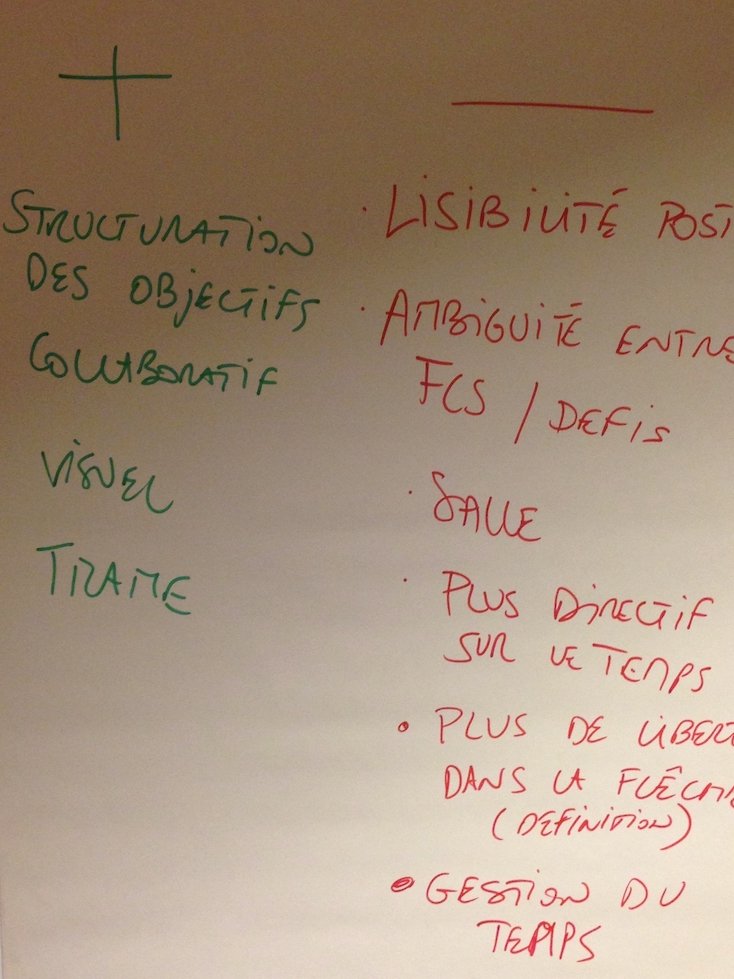 +
STRUCTURATION
DES OBJECTIFS
COLLABORATIF
VISUEL
TRAME
—
· LISIBILITÉ POST
· AMBIGUITÉ ENTRE
FCS / DEFIS
· SALLE
· PLUS DIRECTIF
SUR LE TEMPS
• PLUS DE LIBERT
DANS LA FLÊCH
(DEFINITION)
• GESTION DU
TEMPS